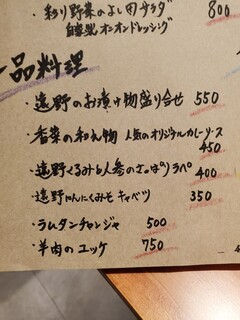 彩り野菜のよし田サラダ 800
自家製オニオンドレッシング
一品料理
・遠野のお漬け物盛り合せ 550
・香菜の和え物 人気のオリジナルカレーソース
450
・遠野くるみと人参のさっぱりラペ 400
・遠野にんにくみそキャベツ 350
・ラムタンチャンジャ 500
・羊肉のユッケ 750